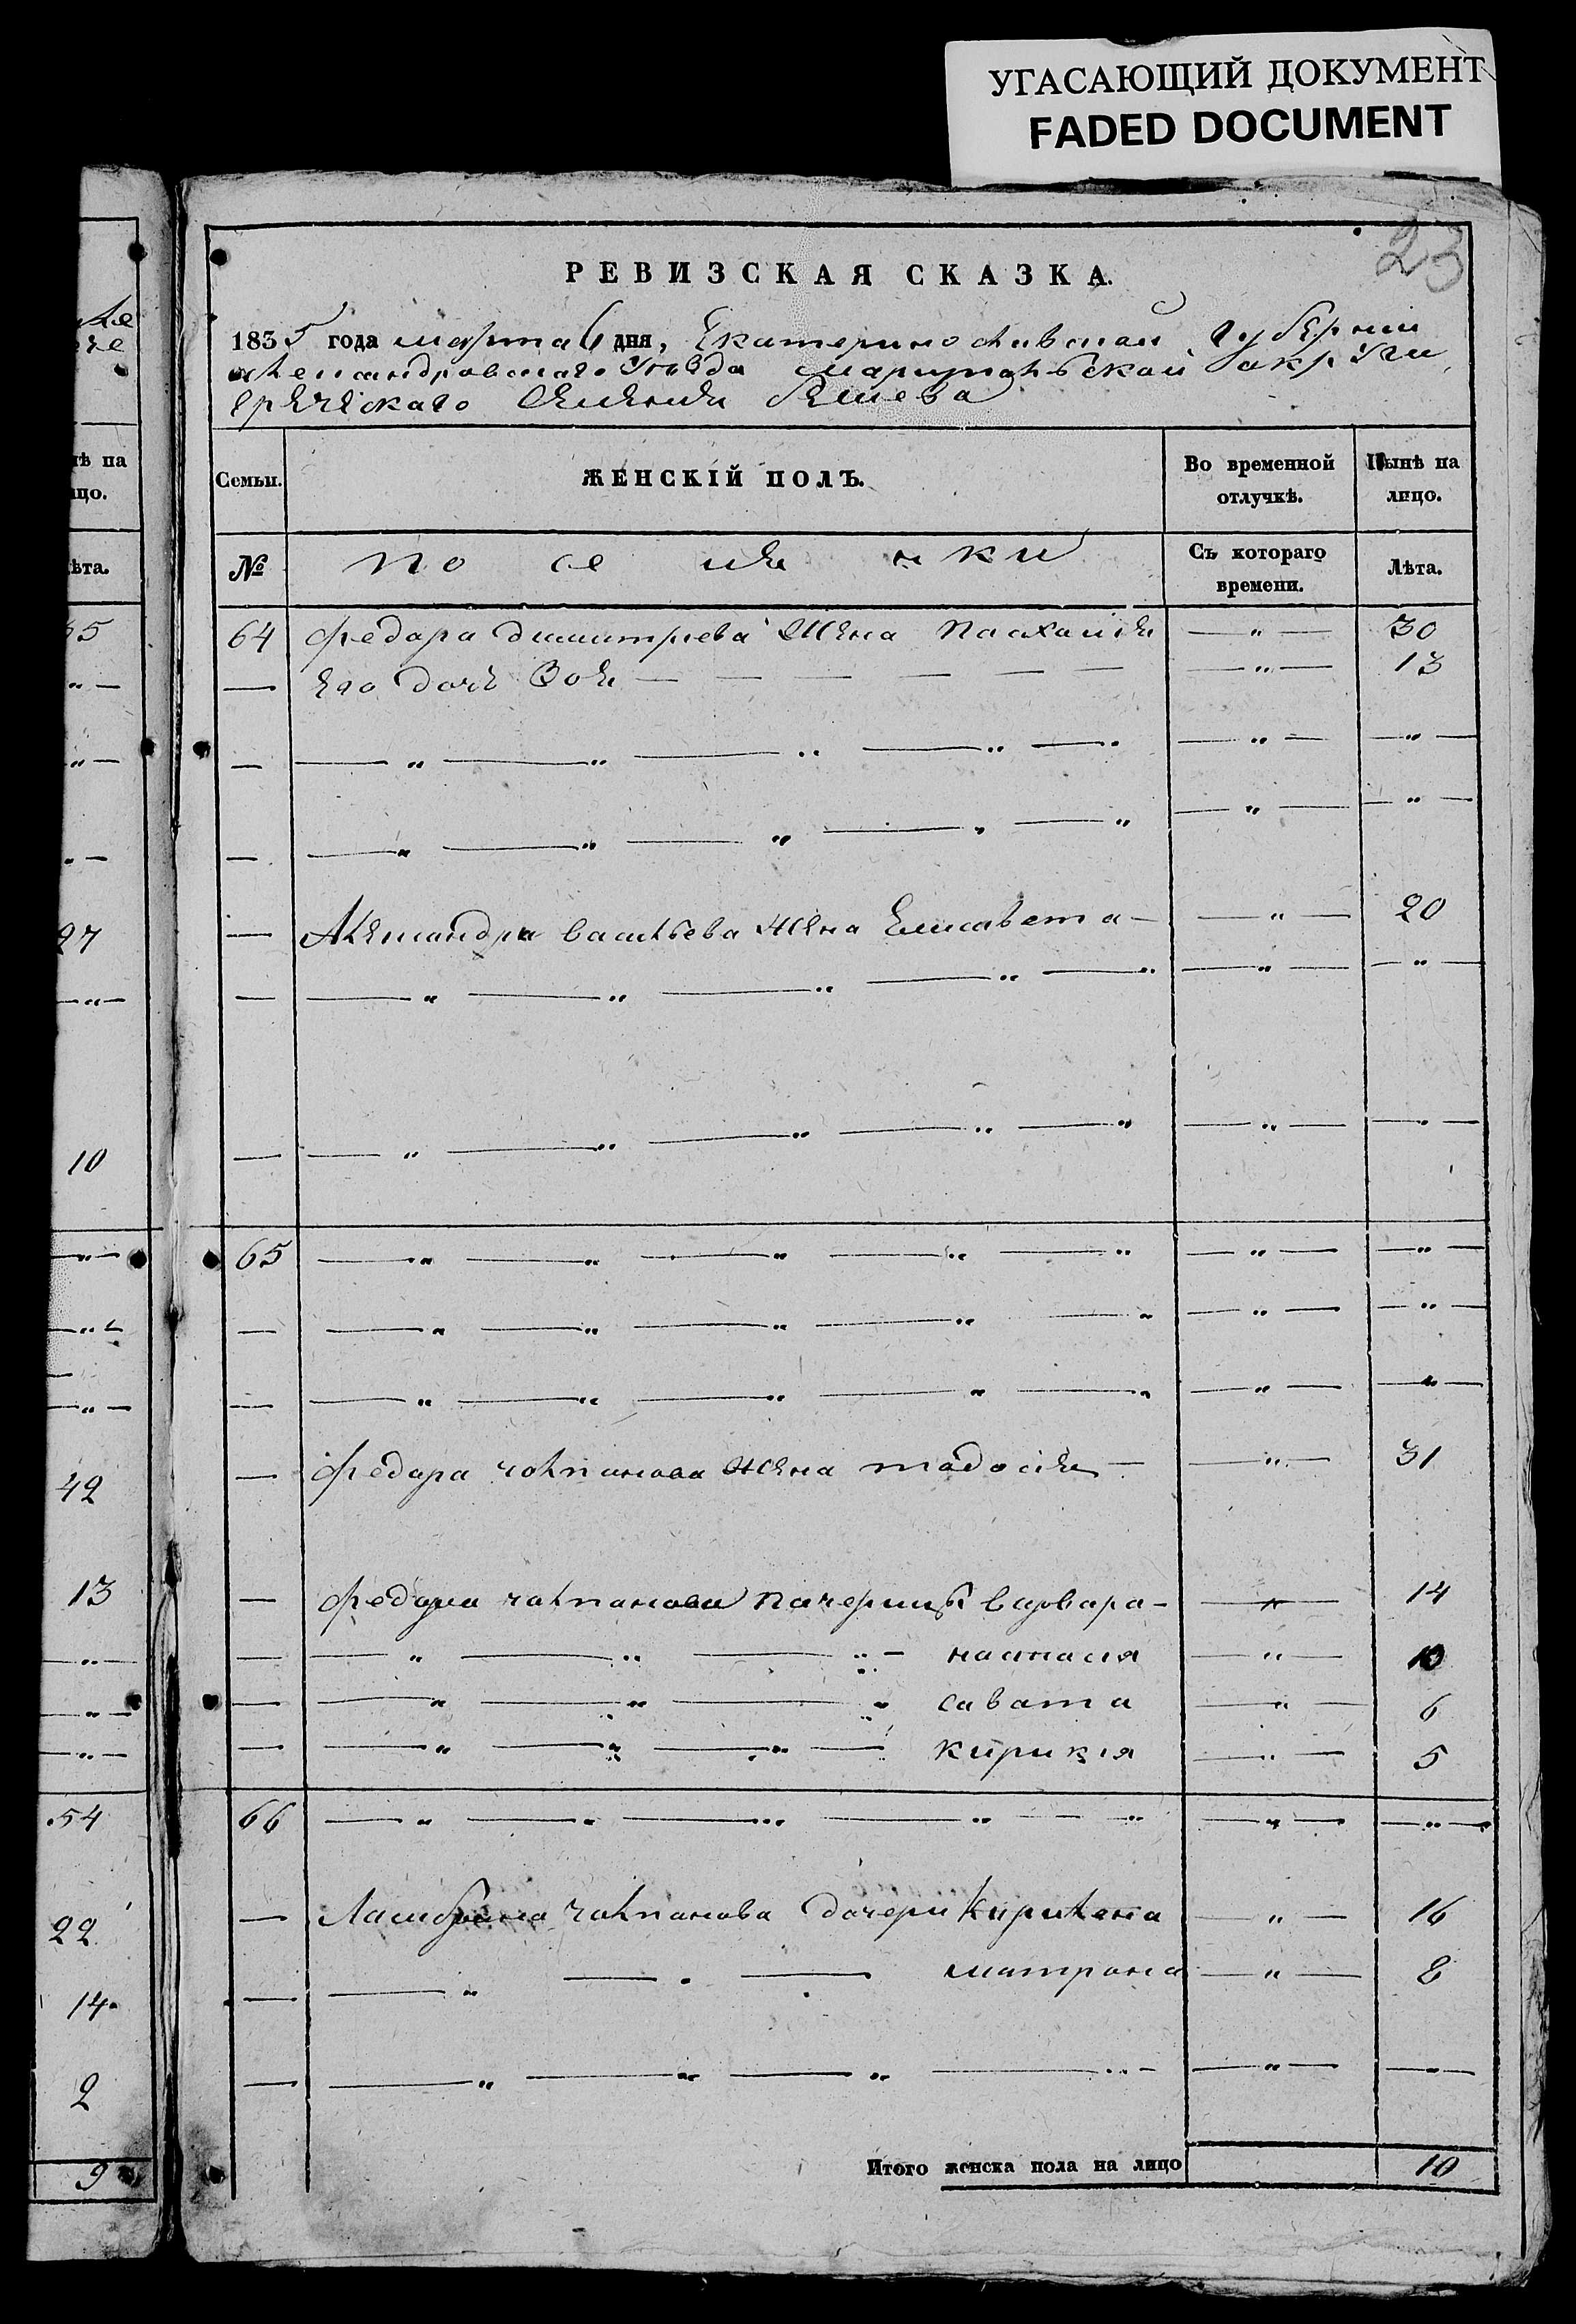 УГАСАЮЩИЙ ДОКУМЕНТ
FADED DOCUMENT
23
РЕВИЗСКАЯ СКАЗКА.
1835 года марта 6 дня, Екатеринославской Губерніи
александровскаго Уезда мариупольской округи
греческаго селения бешева
Семьи. ЖЕНСКІЙ ПОЛЪ. Во временной отлучкѣ. Нынѣ на лицо.
№ поселянки Съ котораго времени. Лѣта.
64 федара димитриева жена пасхалия — „ — 30
— его дочь Зоя — — — — — — — „ — 13
— — „ — „ — „ — „ — „ — „ — — „ —
— — „ — „ — „ — „ — „ — „ — — „ —
— Александра васильева жена Елисавета — — „ — 20
— — „ — „ — „ — „ — „ — „ — — „ —
— — „ — „ — „ — „ — „ — „ — — „ —
65 — „ — „ — „ — „ — „ — „ — — „ —
— — „ — „ — „ — „ — „ — „ — — „ —
— — „ — „ — „ — „ — „ — „ — — „ —
— федара чолпанова жена тадосия — — „ — 31
— федара чолпанова пачерицы варвара — — „ — 14
— — „ — „ — „ — настасия — „ — 10
— — „ — „ — „ савата — „ — 6
— — „ — „ — „ — кирикия — „ — 5
66 — „ — „ — „ — „ — „ — „ — — „ —
— чолпанова дочери Кирилена — „ — 16
— — „ — „ — матрона — „ — 8
— — „ — „ — „ — „ — — „ — — „ —
Итого женска пола на лицо 10